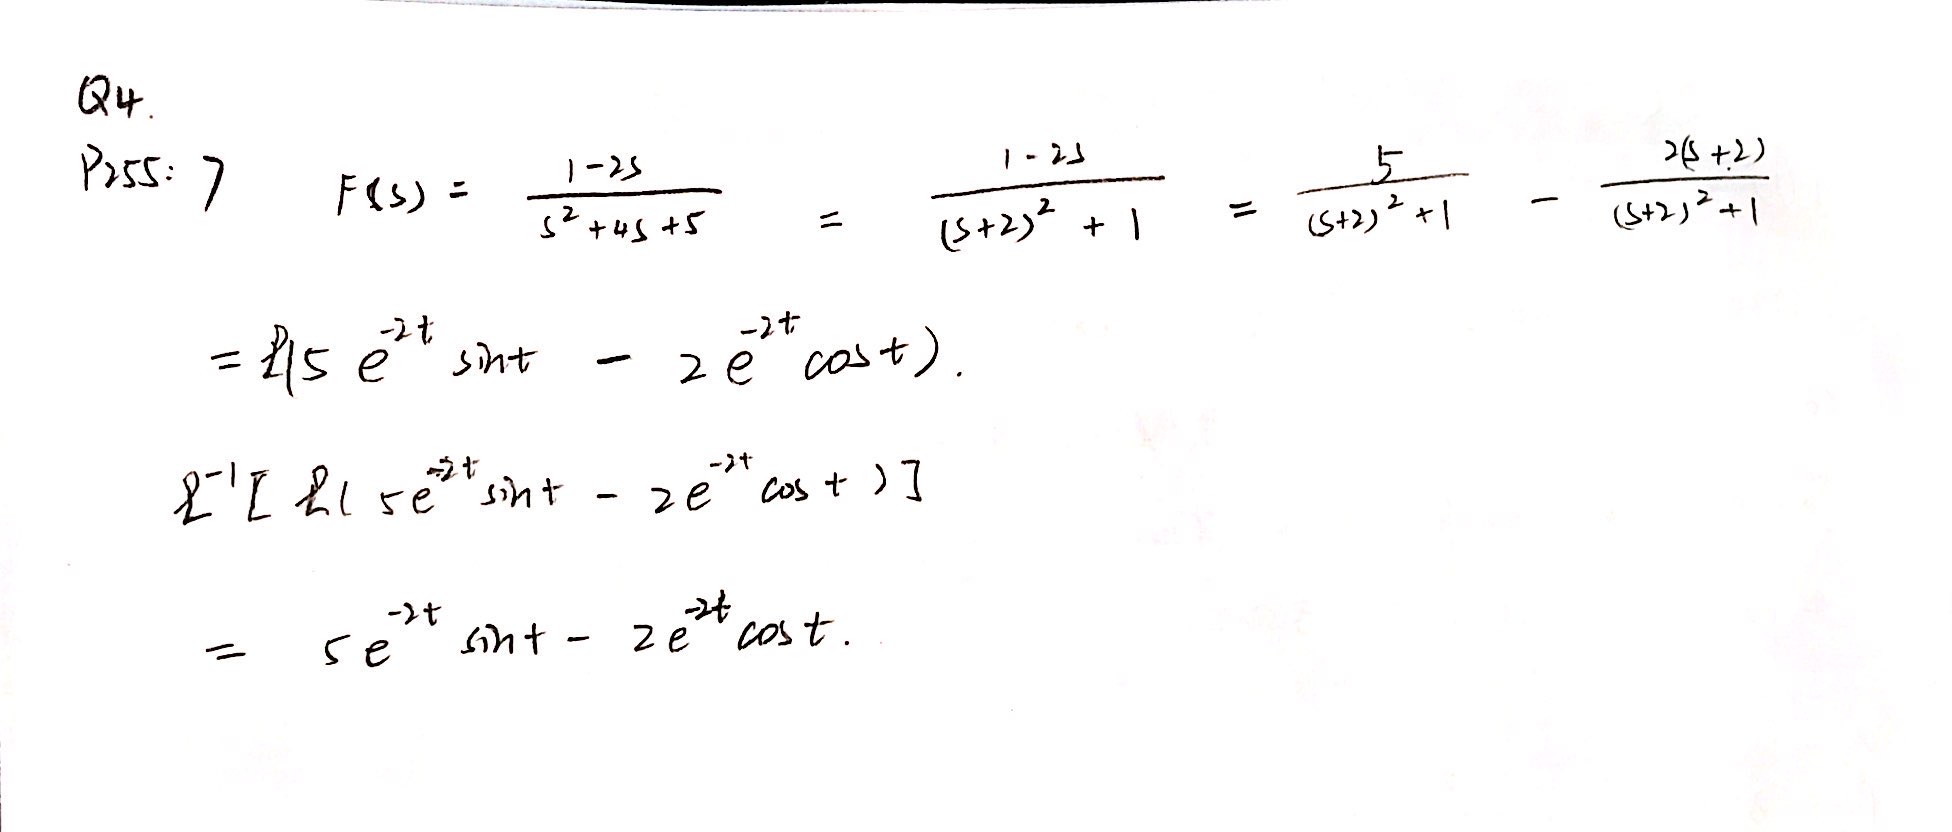 Q4.
P255: 7 F(s) = \frac{1-2s}{s^2+4s+5} = \frac{1-2s}{(s+2)^2+1} = \frac{5}{(s+2)^2+1} - \frac{2(s+2)}{(s+2)^2+1}
= ℒ(5e^{-2t} sint - 2e^{-2t} cost).
ℒ^{-1}[ℒ(5e^{-2t} sint - 2e^{-2t} cost)]
= 5e^{-2t} sint - 2e^{-2t} cost.